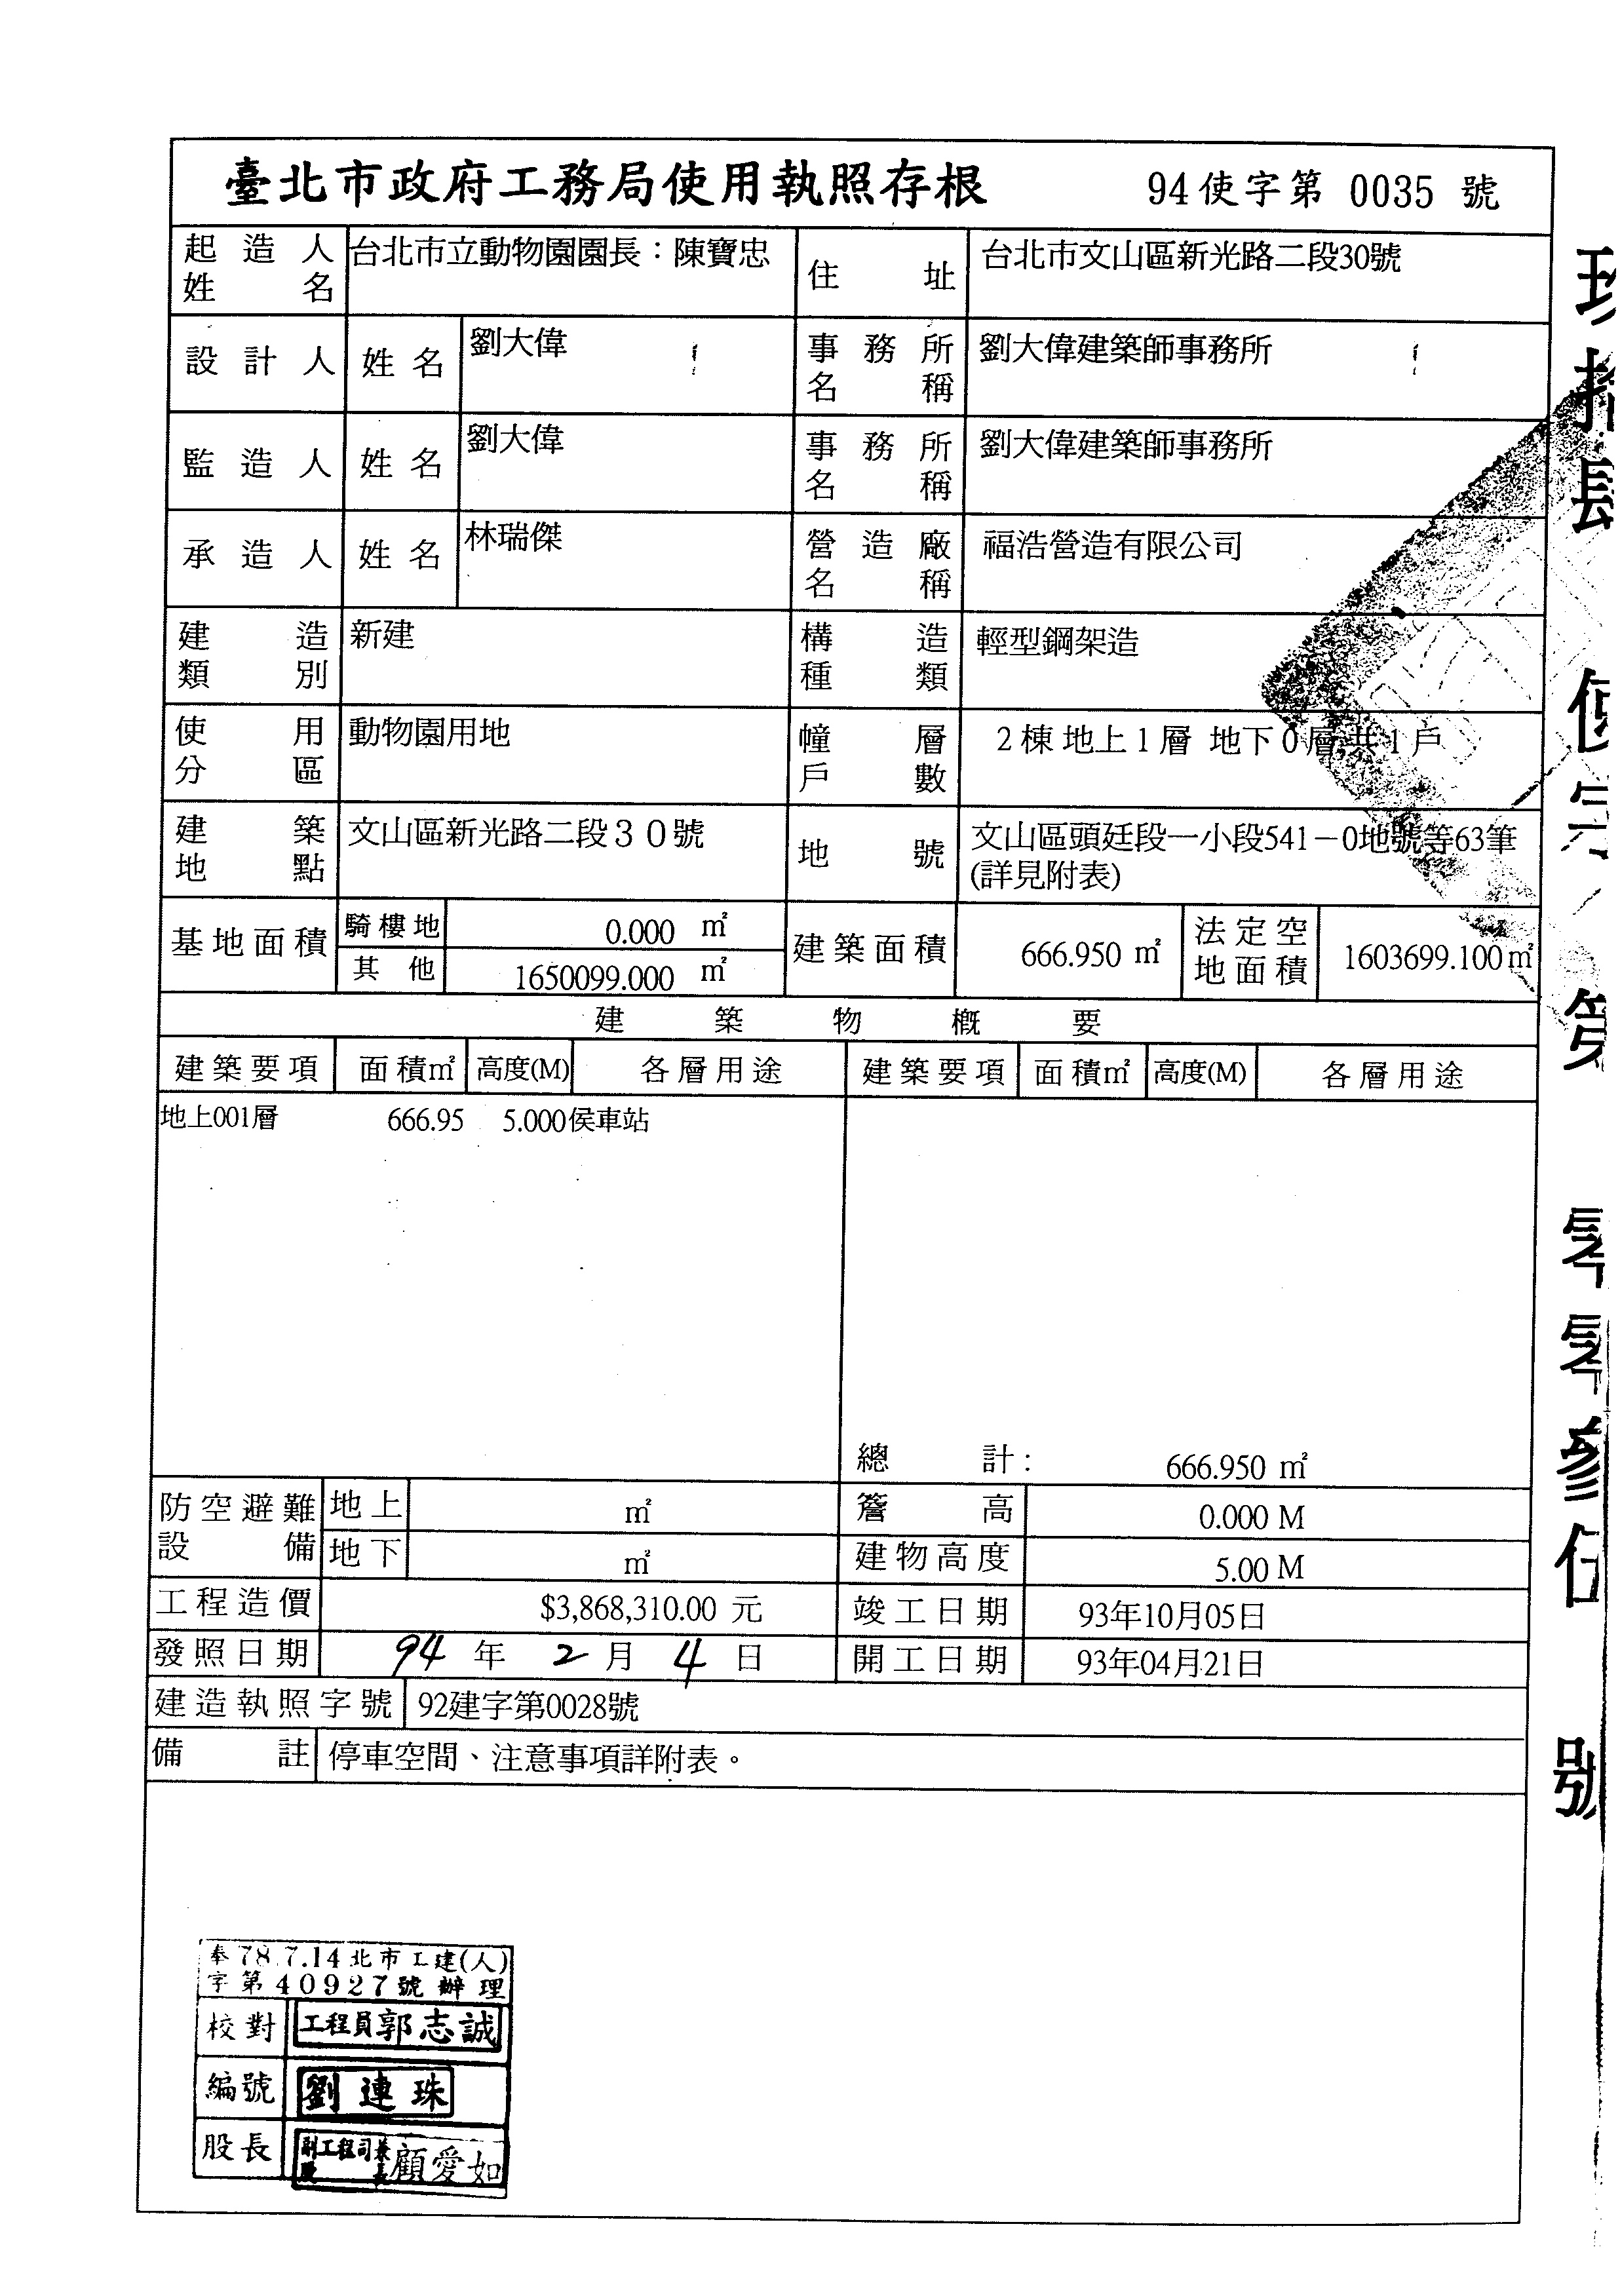 臺北市政府工務局使用執照存根 94使字第 0035 號
起造人姓名 台北市立動物園園長：陳寶忠 住址 台北市文山區新光路二段30號
設計人 姓名 劉大偉 事務所名稱 劉大偉建築師事務所
監造人 姓名 劉大偉 事務所名稱 劉大偉建築師事務所
承造人 姓名 林瑞傑 營造廠名稱 福浩營造有限公司
建造類別 新建 構造種類 輕型鋼架造
使用分區 動物園用地 幢層戶數 2棟 地上1層 地下0層,共1戶
建築地點 文山區新光路二段３０號 地號 文山區頭廷段一小段541－0地號等63筆
(詳見附表)
基地面積 騎樓地 0.000 ㎡ 建築面積 666.950 ㎡ 法定空地面積 1603699.100㎡
其他 1650099.000 ㎡
建築物概要
建築要項 面積㎡ 高度(M) 各層用途 建築要項 面積㎡ 高度(M) 各層用途
地上001層 666.95 5.000侯車站
總計: 666.950 ㎡
防空避難設備 地上 ㎡ 簷高 0.000 M
地下 ㎡ 建物高度 5.00 M
工程造價 $3,868,310.00 元 竣工日期 93年10月05日
發照日期 94 年 2 月 4 日 開工日期 93年04月21日
建造執照字號 92建字第0028號
備註 停車空間、注意事項詳附表。
奉78.7.14北市工建(人)
字第40927號辦理
校對 工程員郭志誠
編號 劉連珠
股長 副工程司兼股長顧愛如
玖拾肆 使字第 零零參伍 號